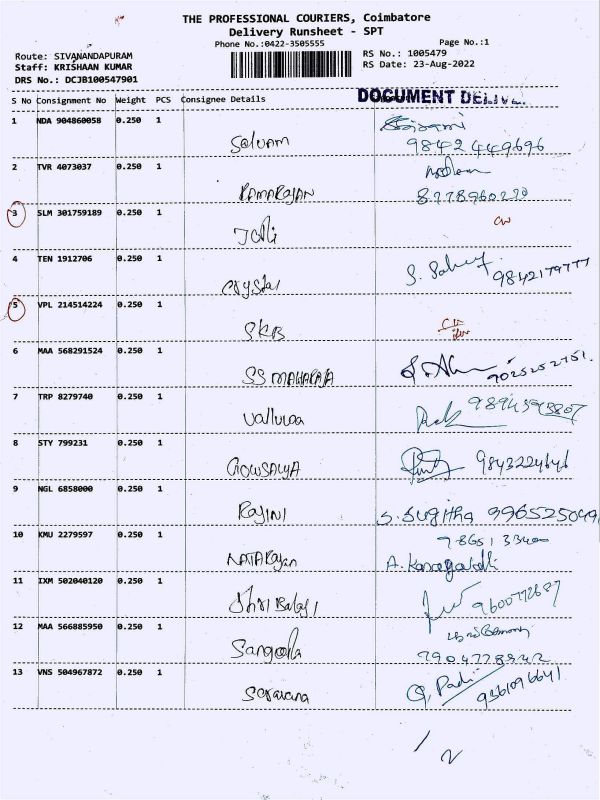 THE PROFESSIONAL COURIERS, Coimbatore
Delivery Runsheet - SPT
Phone No.:0422-3505555 Page No.:1
Route: SIVANANDAPURAM RS No.: 1005479
Staff: KRISHAAN KUMAR RS Date: 23-Aug-2022
DRS No.: DCJB100547901
S No Consignment No Weight PCS Consignee Details DOCUMENT
1 NDA 904860058 0.250 1
Selvam 9842449696
2 TVR 4073037 0.250 1
RAMARAJAN
3 SLM 301759189 0.250 1
4 TEN 1912706 0.250 1
Crystal 9842179777
5 VPL 214514224 0.250 1
SKB
6 MAA 568291524 0.250 1
SS MAHARAJA 9025252751.
7 TRP 8279740 0.250 1
Valluvaa
8 STY 799231 0.250 1
GOWSALYA
9 NGL 6858000 0.250 1
RAJINI S. Sugitha 996525049
10 KMU 2279597 0.250 1
NATARAJAN
11 IXM 502040120 0.250 1
Shri Balaji 9600772687
12 MAA 566885950 0.250 1
Sangeetha
13 VNS 504967872 0.250 1
Saravana 9361096641
/ 2